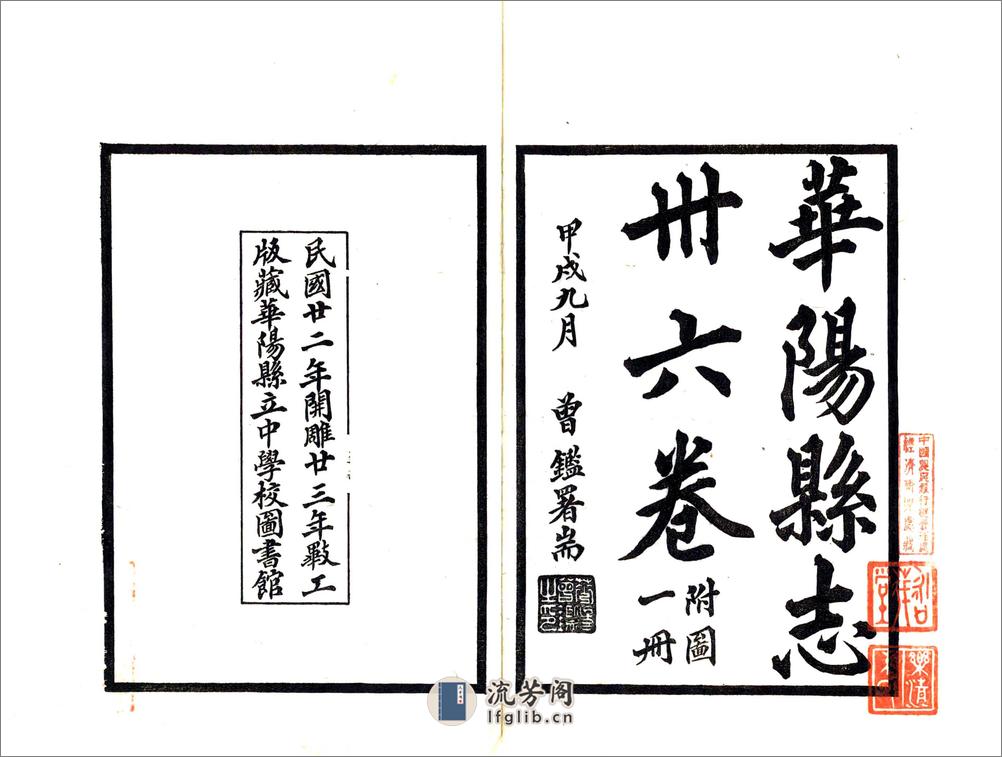 華陽縣志
卅六卷
附圖
一冊
甲戌九月 曾鑑署耑
民國廿二年開雕廿三年斁工
版藏華陽縣立中學校圖書館
流芳阁
lfglib.cn